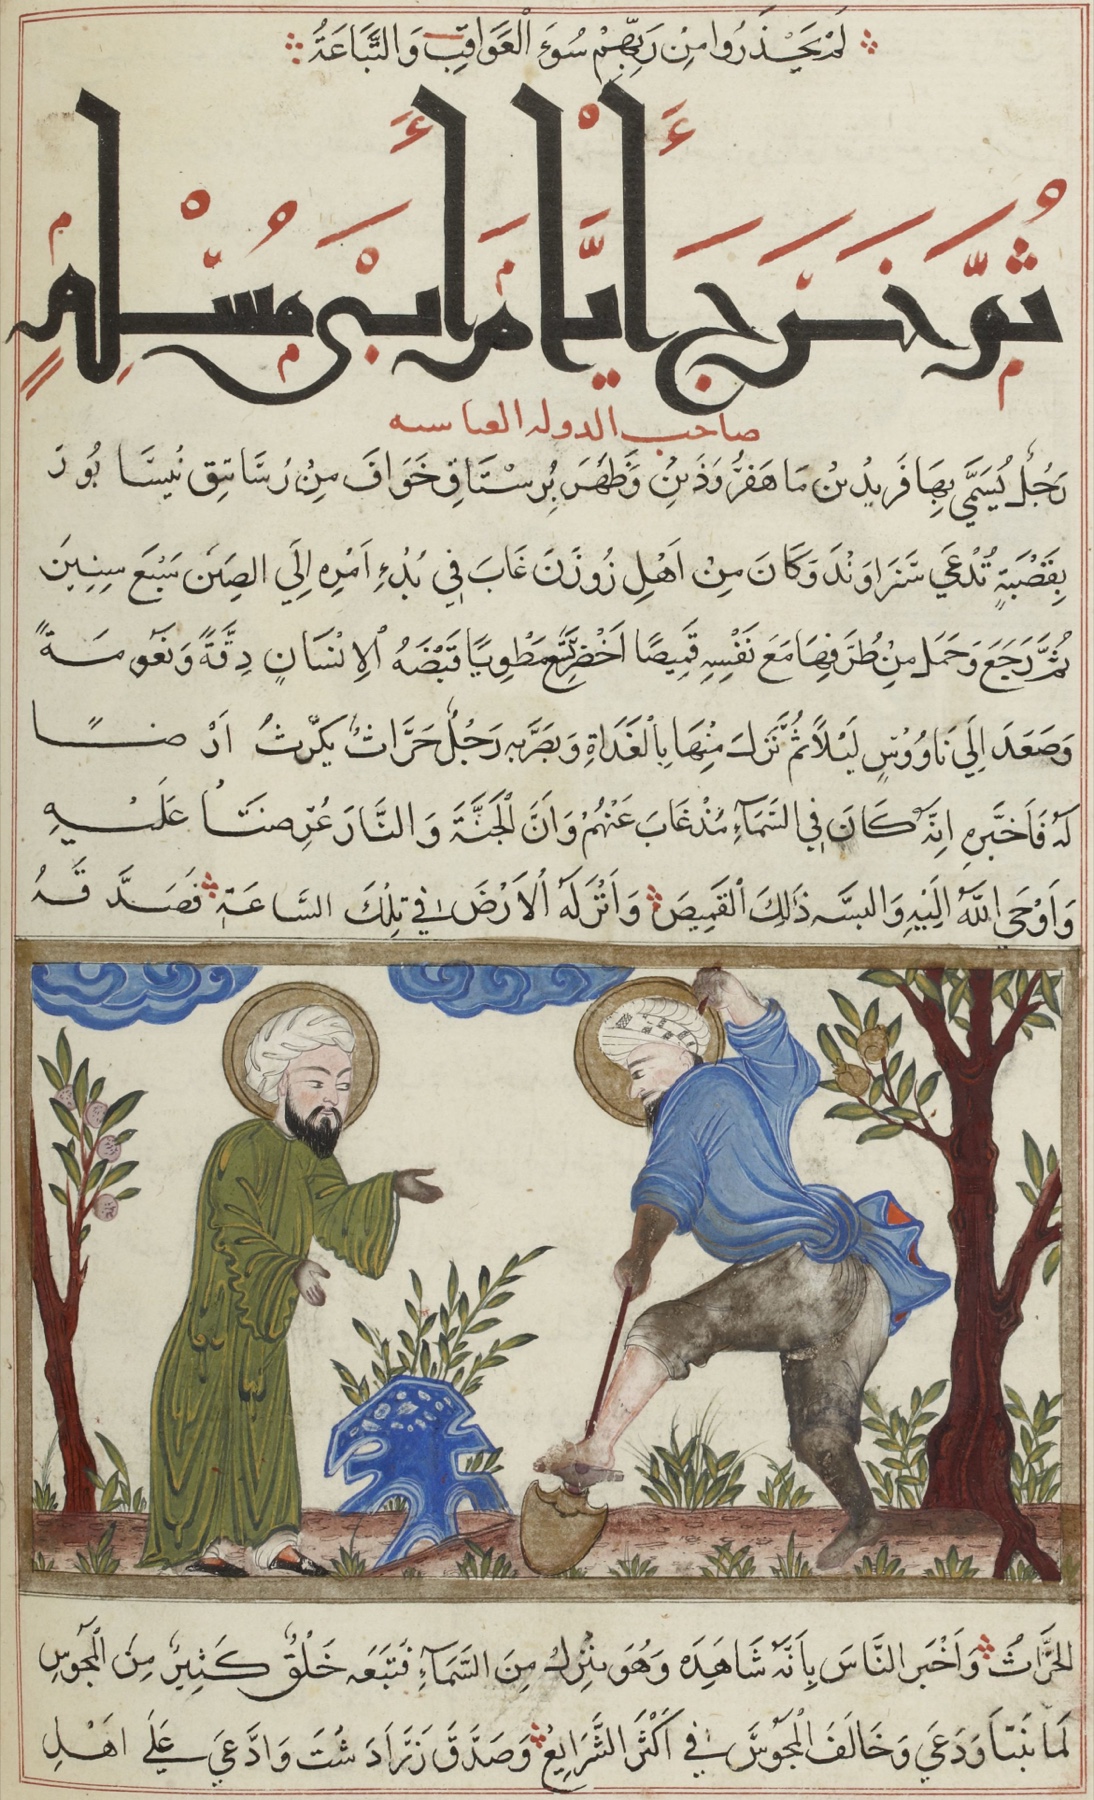 لَمْ يَحْذَرُوا مِنْ رَبِّهِمْ سُوءَ الْعَوَاقِبِ وَالتَّبَاعَةُ
ثُمَّ خَرَجَ أَيَّامَ أَبِي مُسْلِمٍ
صاحب الدوله العباسيه
رَجُلٌ يُسَمَّي بِهَافَرِيدُ بْنُ مَاهَفَرُّوَذَيْنِ وَظَهَرَ بِرُسْتَاقِ خَوَافَ مِنْ رَسَاتِيقِ نِيسَابُورَ
بِقَصْبَةٍ تُدْعَي سَرَاوَنْدَ وَكَانَ مِنْ اَهْلِ زُوزَنَ غَابَ فِي بُدْءِ اَمْرِهِ اِلَي الصِّينَ سَبْعَ سِنِينَ
ثُمَّ رَجَعَ وَحَمَلَ مِنْ طُرَفِهَا مَعَ نَفْسِهِ قَمِيصًا اَخْضَرَ يَسَعُ مَطْوِيًّا قَبْضَهُ الاِنْسَانِ دِقَّةً وَنَعُومَةً
وَصَعَدَ اِلَي نَاوُوْسٍ لَيْلًا ثُمَّ نَزَلَ مِنْهَا بِالْغَدَاةِ وَبَصَرَ بِهِ رَجُلٌ حَرَّاثٌ يَكْرُثُ اَرْضًا
لَهُ فَاَخْبَرَهِ اِنَّهُ كَانَ فِي السَّمَآءِ مُذْ غَابَ عَنْهُمْ وَاَنَّ الْجَنَّةَ وَالنَّارَ عُرِضَتَا عَلَيْهِ
وَاَوْحَي اللّٰهُ اِلَيْهِ وَالبسَّه ذَلِكَ الْقَمِيصَ وَاَنْزَلَهُ اْلاَرْضَ فِي تِلْكَ السَّاعَةِ فَصَدَّقَهُ
الحَرَّاثُ وَاَخْبَرَ النَّاسَ بِاَنَّهُ شَاهَدَه وَهُوَ يَنْزِلُ مِنَ السَّمَآءِ فَتَبَعَه خَلْقٌ كَثِيرٌ مِنَ الْمَجُوسِ
لَمَا تَنَبَّاَ وَدَعَي وَخَالَفَ الْمَجُوسَ فِي اَكْثَرِ الشَّرَايِعِ وَصَدَّقَ زَرَادَشْتَ وَادَّعَي عَلَي اَهْلِ